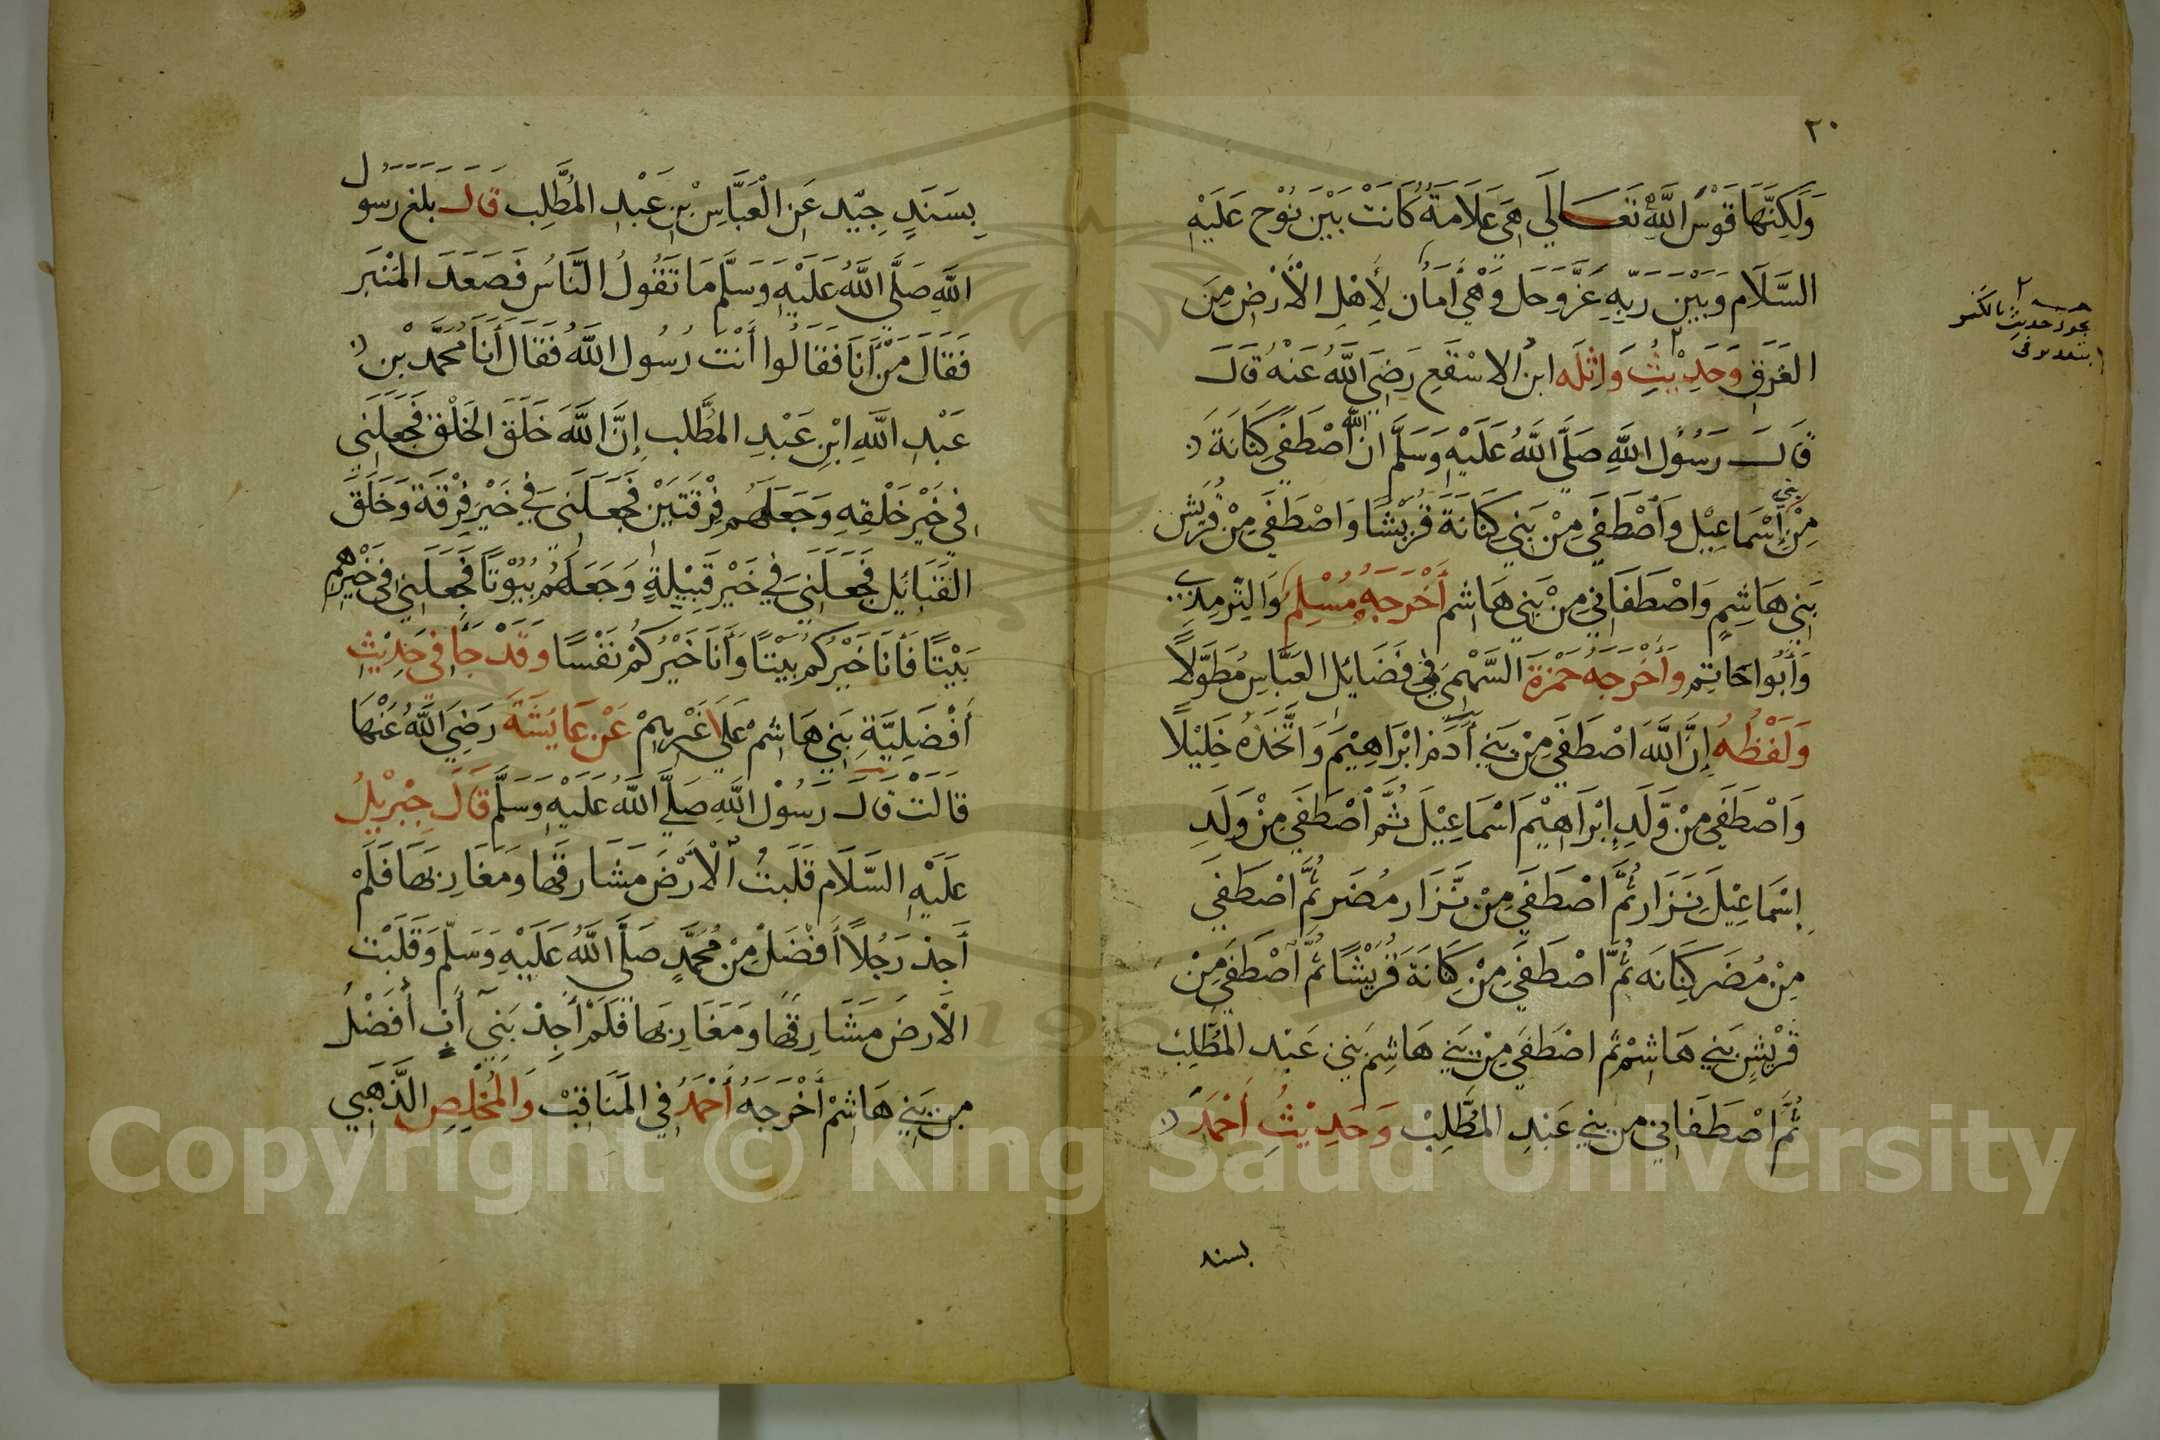 ٢٠
وَلَكِنَّهَا قَوْسُ اللَّهِ تَعَالَى هِيَ عَلَامَةٌ كَانَتْ بَيْنَ نُوْحٍ عَلَيْهِ
السَّلَام وَبَيْنَ رَبِّهِ عَزَّ وَجَل وَهْيَ أَمَانٌ لِأَهْلِ الْأَرْضِ مِنَ
الغَرَقِ وَحَدِيْثِ وَاثِلَه ابنُ الاسْقَعِ رَضِيَ اللَّهُ عَنْهُ قَالَ
قَالَ رَسُوْل اللَّهِ صَلَّى اللَّهُ عَلَيْهِ وَسَلَّمَ انَّ اللَّه اصْطَفَى كَنَانَةَ
مِنْ بني إِسْمَاعِيْل وَاصْطَفَى مِنْ بَنِي كَنَانَةَ قُرَيْشًا وَاصْطَفَى مِنْ قُرَيْش
بَنِي هَاشِمٍ وَاصْطَفَانِي مِنْ بَنِي هَاشم أَخْرَجَهُ مُسْلِم وَالتِّرْمِذِي
وَأَبُوا حَاتِم وَأَخْرَجَهُ حَمْزَةَ السَّهْمِيَ فِي فَضَايِل العَبَّاسِ مُطَوَّلًا
وَلَفْظُهُ إِنَّ اللَّهَ اصْطَفَى مِنْ بَنِي أَدَمَ ابْرَاهِيْمَ وَاتَّخَذَهُ خَلِيْلًا
وَاصْطَفَى مِنْ وَلَدِ إِبْرَاهِيْمَ اسْمَاعِيْلَ ثُمَّ اصْطَفَى مِنْ وَلَدِ
إِسْمَاعِيْلَ نِزَار ثُمَّ اصْطَفَى مِنْ نِّزَار مُضَر ثُمَّ اصْطَفَى
مِنْ مُضَر كِنَانَه ثُمَّ اصْطَفَى مِنْ كِنَانَةَ قُرَيْشًا ثُمَّ اصْطَفَى مِنْ
قُرَيْشٍ بَنِي هَاشِمْ ثُم اصْطَفَى مِنْ بَنِي هَاشِم بَنِي عَبْد الْمُطَّلِبْ
ثُمَّ اصْطَفَانِي مِن بَنِي عَبْدِ المُطَّلِبْ وَحَدِيْثُ أَحْمَدَ
بسند
بِسَنَدٍ جِيّد عَن الْعَبَّاسِ بْنِ عَبْدِ المُطَّلِب قَالَ بَلَغَ رَسُوْل
اللَّهِ صَلَّى اللَّهُ عَلَيْهِ وَسَلَّم مَا تَقُولُ النَّاسُ فَصَعَدَ المَنْبَر
فَقَالَ مَنْ أَنَا فَقَالُوا أَنْتَ رَسُول اللَّهُ فَقَالَ أَنَا مُحَمَّد بْن
عَبْدِ اللَّهِ ابْنِ عَبْدِ المُطَّلب إِنَّ اللَّهَ خَلَقَ الخَلْقَ فَجَعَلَنِي
فِي خَيْرِ خَلْقِهِ وَجَعَلَهُم فِرْقَتَيْنِ فَجَعَلَنِي فِي خَيْرِ فِرْقَةٍ وَخَلَقَ
القَبَائِل فَجَعَلَنِي فِي خَيْر قَبِيْلَةٍ وَجَعَلَهُم بُيُوْتًا فَجَعَلَنِي فِي خَيْرِهِم
بَيْتًا فَأَنَا خَيْرُكُمْ بَيْتًا وَأَنَا خَيْرُكُمْ نَفْسًا وَقَدْ جَأَ فِي حَدِيْثِ
أَفْضَلِيَّةِ بَنِي هَاشِمْ عَلَى غَيْرِهِمْ عَنْ عَايِشَةَ رَضِيَ اللَّهُ عَنْهَا
قَالَتْ قَالَ رَسُوْل اللَّهِ صَلَّى اللَّهُ عَلَيْهِ وَسَلَّمَ قَالَ جِبْرِيْلُ
عَلَيْهِ السَّلَام قَلَبتُ الْأَرْضَ مَشَارِقَهَا وَمَغَارِبَهَا فَلَمْ
أَجِدْ رَجُلًا أَفْضَلَ مِنْ مُحَمَّدٍ صَلَّى اللَّهُ عَلَيْهِ وَسَلَّم وَقَلَبْت
الْأَرضَ مَشَارِقَهَا وَمَغَارِبَهَا فَلَمْ أَجِدْ بَنِي أَبٍ أَفْضَلُ
مِن بَنِي هَاشِمْ أَخْرَجَهُ أَحْمَدُ فِي المَنَاقِبْ وَالمُخَلِّصِ الذَّهَبِي
Copyright © King Saud University